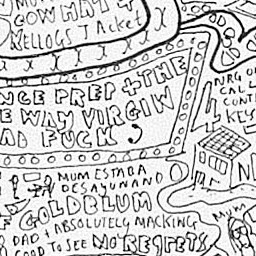 COW HAT +
KELLOGS JACKET
NGE PREP + THE
E WAY VIRGIN
AD FUCK
CAL
CONT
4 KEYS
MUM ESTABA
DESAYUNANDO
GOLDBLUM
DAD + ABSOLUTELY MACKING
GOOD TO SEE NO REGRETS
MUM